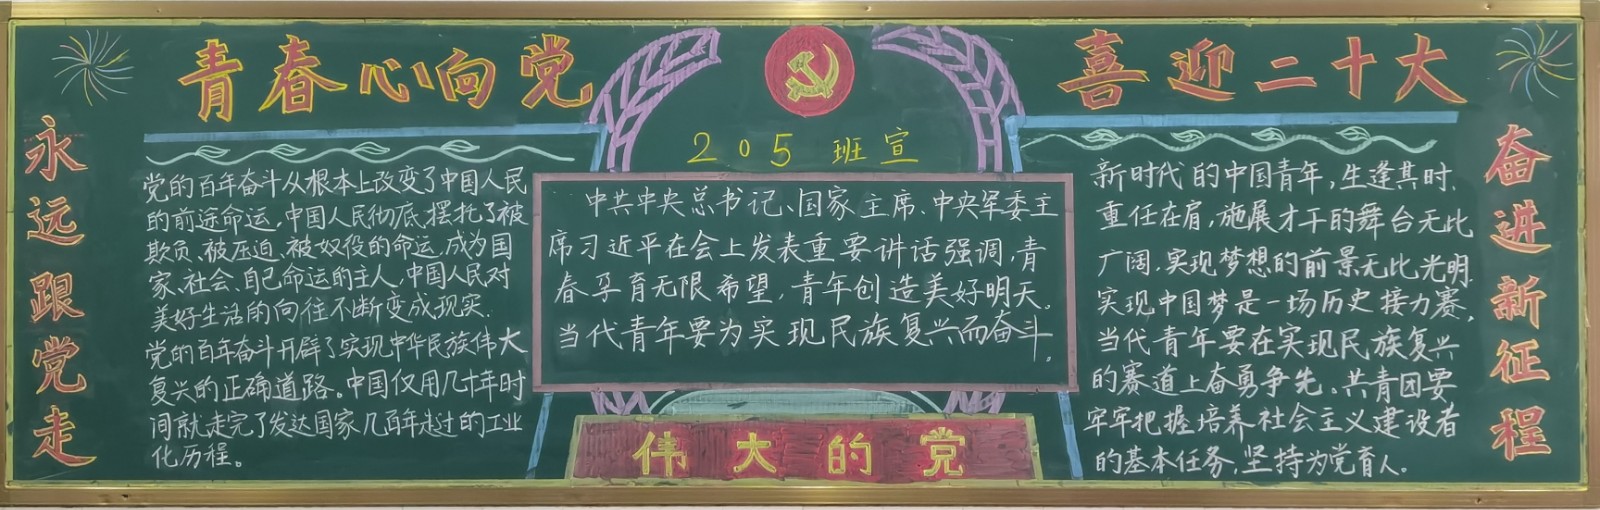 青春心向党
喜迎二十大
永远跟党走
205 班宣
党的百年奋斗从根本上改变了中国人民
的前途命运,中国人民彻底摆托了被
欺负、被压迫、被奴役的命运,成为国
家、社会、自己命运的主人,中国人民对
美好生活的向往不断变成现实.
党的百年奋斗开辟了实现中华民族伟大
复兴的正确道路。中国仅用几十年时
间就走完了发达国家几百年走过的工业
化历程。
中共中央总书记、国家主席、中央军委主
席习近平在会上发表重要讲话强调,青
春孕育无限希望,青年创造美好明天。
当代青年要为实现民族复兴而奋斗。
伟大的党
新时代的中国青年,生逢其时、
重任在肩,施展才干的舞台无比
广阔,实现梦想的前景无比光明.
实现中国梦是一场历史接力赛,
当代青年要在实现民族复兴
的赛道上奋勇争先。共青团要
牢牢把握培养社会主义建设者
的基本任务,坚持为党育人。
奋进新征程